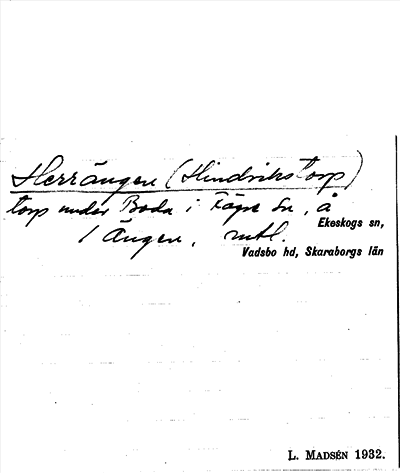 Herrängen (Hindrikstorp)
torp under Boda i Fägre Sn, å
Ekeskogs sn,
Ängen, mtl.
Vadsbo hd, Skaraborgs län
L. MADSÉN 1932.